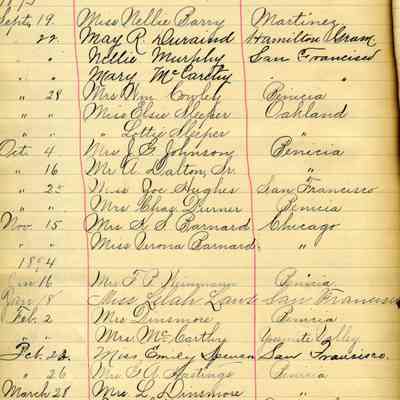 Sept. 19. Miss Nellie Barry Martinez
" 22. May R. Duraind Hamilton Gram.
" " Nellie Murphy San Francisco
Mary McCarthy " "
" 28 Mrs Wm Cowley Benicia
" " Miss Elsie Sleeper Oakland
" " " Lottie Sleeper "
Oct. 4 Mrs J. G. Johnson Benicia
" 16 Mr A. Dalton, Jr. "
" 25 Miss Zoe Hughes San Francisco
" " Mrs Chas. Durner Benicia
Nov. 15 Mrs Barnard Chicago
" " Miss Verona Barnard, "
1894
Jan 16 Mrs F. P. Weinmann Benicia
Jan. 18 Miss Lelah Lane San Francisco
Feb. 2 Mrs Dinsmore Benicia
" " Mrs. McCarthy Yosemite Valley
Feb. 22. Miss Emily San Francisco.
" 26 Mrs. Hastings Benicia
March 28 Mrs. L. Dinsmore "